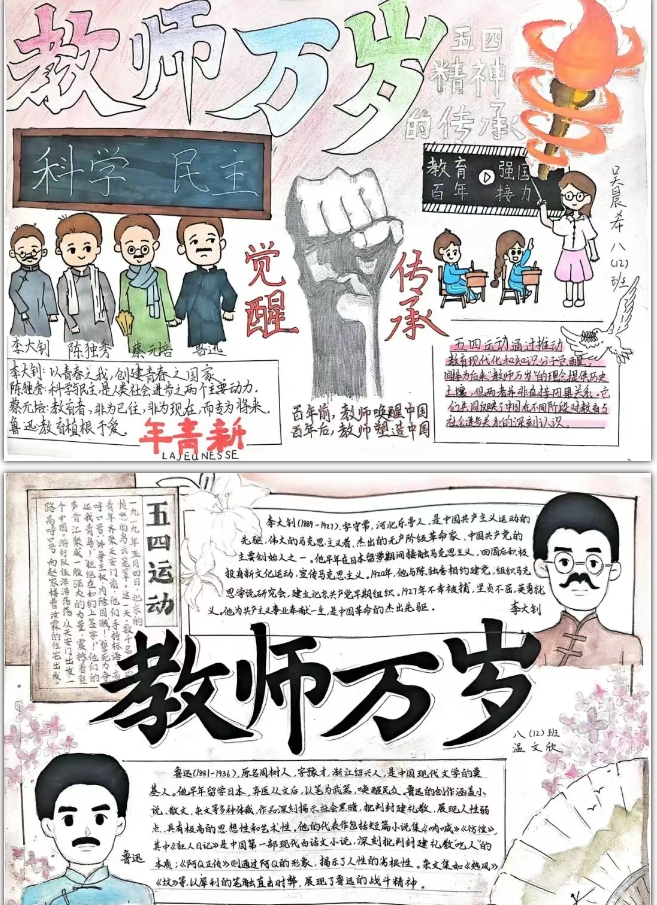 教师万岁
五四
精神
的传承
科学 民主
教育 强国
百年 接力
吴晨希 八(12)班
觉醒
传承
李大钊 陈独秀 蔡元培 鲁迅
李大钊:以青春之我,创建青春之国家
陈独秀:科学与民主是人类社会进步之两个主要动力.
蔡元培:教育者,非为已往,非为现在,而专为将来.
鲁迅:教育植根于爱.
年青新
LAJEUNESSE
百年前,教师唤醒中国
百年后,教师塑造中国
五四运动通过推动
教育现代化和知识分子觉醒,
间接为后来"教师万岁"的理念提供历史
土壤,但两者并非直接因果关系.它
们共同反映了中国在不同阶段对教育与
社会进步关系的深刻认识.
五四运动
一九一九年五月四日,北京的
李大钊(1889-1927),字守常,河北乐亭人,是中国共产主义运动的
先驱,伟大的马克思主义者,杰出的无产阶级革命家,中国共产党的
主要创始人之一。他早年在日本留学期间接触马克思主义,回国后积极
投身新文化运动,宣传马克思主义,1920年,他与陈独秀相约建党,组织马克
思学说研究会,建立北京共产党早期组织,1927年不幸被捕,坚贞不屈,英勇就
义。他为共产主义事业奉献一生,是中国革命的杰出先驱。
李大钊
教师万岁
八(12)班
温文欣
鲁迅(1881-1936),原名周树人,字豫才,浙江绍兴人,是中国现代文学的奠
基人。他早年留学日本,弃医从文后,以笔为武器,唤醒民众。鲁迅的创作涵盖小
说、散文、杂文等多种体裁,作品深刻揭示社会黑暗,批判封建礼教,展现人性弱
点,具有极高的思想性和艺术性,他的代表作包括短篇小说集《呐喊》《彷徨》,
其中《狂人日记》是中国第一部现代白话文小说,深刻批判封建礼教"吃人"的
本质;《阿Q正传》则通过阿Q的形象,揭示了人性的劣根性。杂文集如《热风》
《坟》等,以犀利的笔触直击时弊,展现了鲁迅的战斗精神。
鲁迅